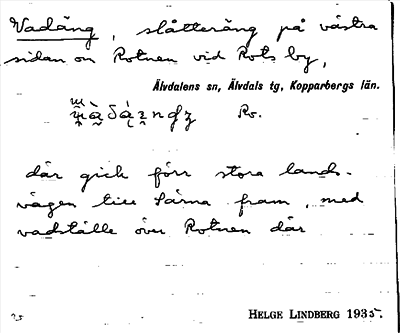 Vadäng, slåtteräng på västra
sidan om Rotnen vid Rots by,
Älvdalens sn, Älvdals tg, Kopparbergs län.
Ro.
där gick förr stora lands-
vägen till Särna fram, med
vadställe över Rotnen där
HELGE LINDBERG 1935.